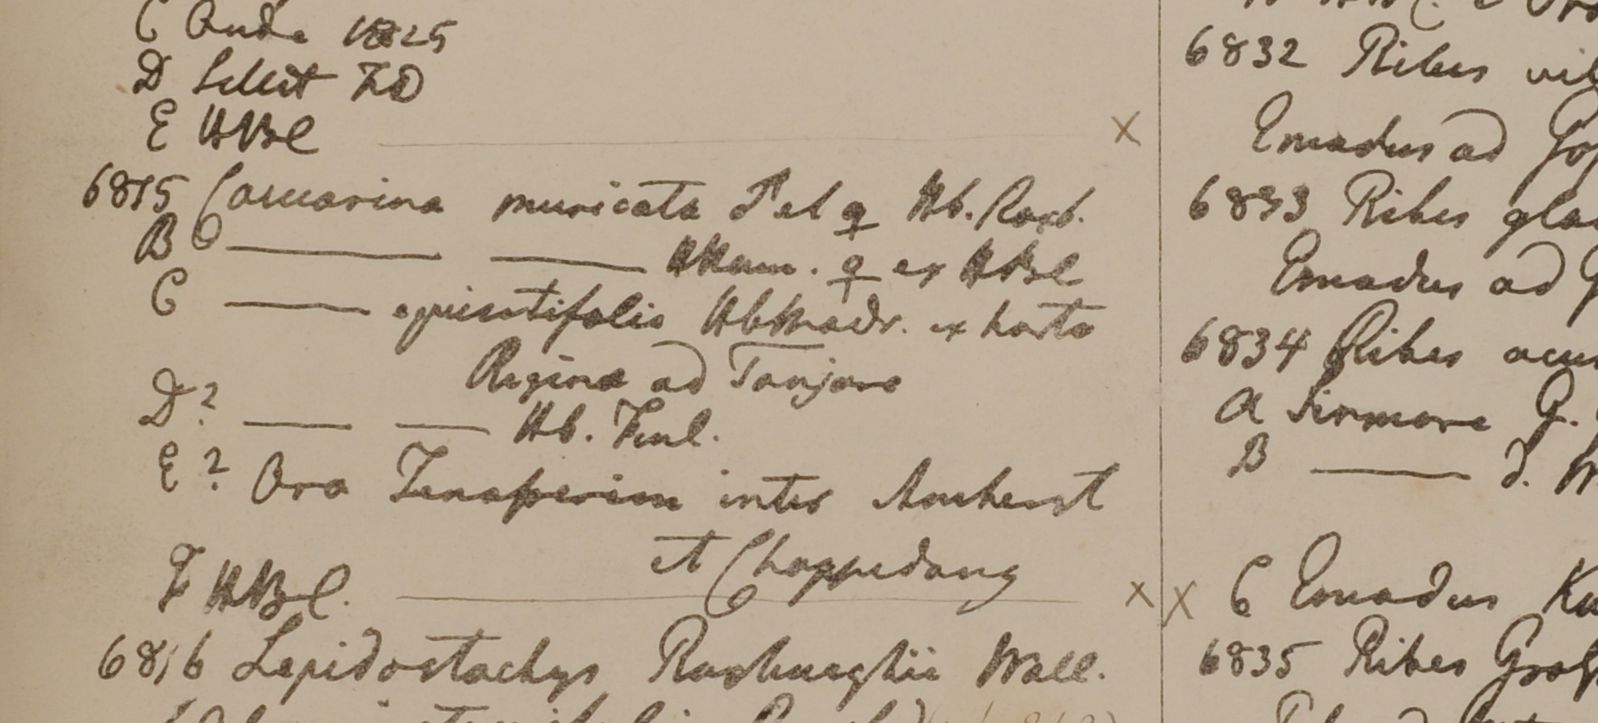 C Oude 1825
D Silhet FD
E HBl
6815 Casuarina muricata ♂ et ♀ Hb. Roxb.
B ——— ——— HHam. ♀ ex HBl
C ——— equisetifolia HbMadr. ex horto
Reginæ ad Tanjore
D? ——— ——— Hb. Finl.
E? Ora Tenasserim inter Amherst
et Chappedong
F HBl.
6816 Lepidostachys Roxburghii Wall.
6832 Ribes vil
Emodus ad Gos
6833 Ribes gla
Emodus ad G
6834 Ribes acu
A Sirmore G.
B ——— d.
C Emodus Ku
6835 Ribes Gros